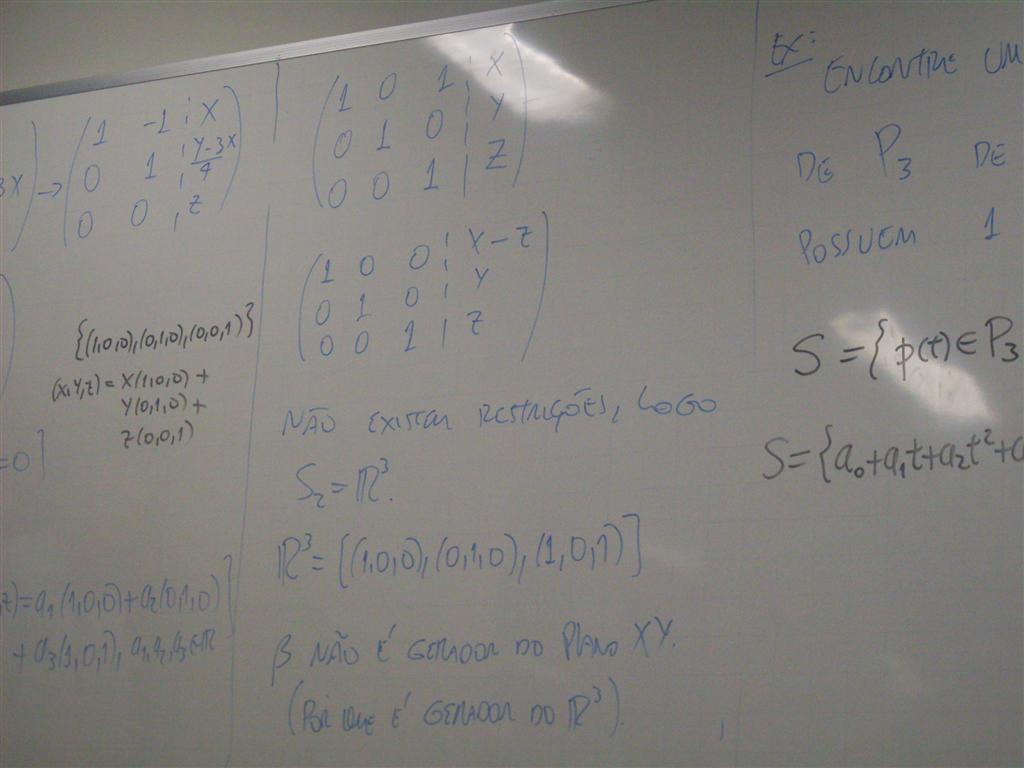 3X) → (1 -1 ¦ X
0 1 ¦ Y-3X/4
0 0 ¦ Z)
{(1,0,0),(0,1,0),(0,0,1)}
(X,Y,Z) = X(1,0,0) +
Y(0,1,0) +
Z(0,0,1)
=0]
,z)=a₁(1,0,0)+a₂(0,1,0)
+a₃(1,0,1), a₁,a₂,a₃∈ℝ]
(1 0 1 ¦ X
0 1 0 ¦ Y
0 0 1 | Z)
(1 0 0 ¦ X-Z
0 1 0 ¦ Y
0 0 1 | Z)
NÃO EXISTEM RESTRIÇÕES, LOGO
S₂=ℝ³.
ℝ³=[(1,0,0),(0,1,0),(1,0,1)]
β NÃO É GERADOR DO PLANO XY.
(POR QUE É GERADOR DO ℝ³).
EX: ENCONTRE UM
DE P₃ DE
POSSUEM 1
S={p(t)∈P₃
S={a₀+a₁t+a₂t²+a